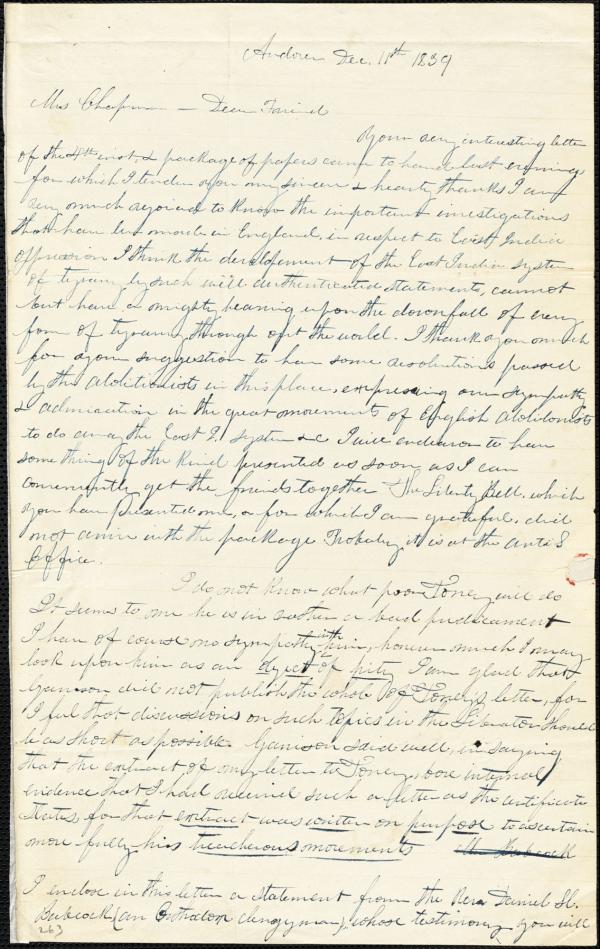 Andover Dec. 11th 1839
Mrs Chapman — Dear Friend
Your very interesting letter
of the 4th inst, & package of papers came to hand last evening
for which I tender you my sincere & hearty thanks I am
very much rejoiced to know the important investigations
that have been made in England, in respect to East India
oppression I think the development of the East India system
of tyranny by such well authenticated statements, cannot
but have a mighty bearing upon the downfall of every
form of tyranny through out the world. I thank you much
for your suggestion to have some resolutions passed
by the abolitionists in this place, expressing our sympathy
& admiration in the great movements of English Abolitionists
to do away the East I. system &c I will endeavor to have
something of the kind presented as soon as I can
conveniently get the friends together The Liberty Bell, which
you have presented me, & for which I am grateful, did
not arrive with the package Probably it is at the Anti S
Office.
I do not know what poor Torrey will do
It seems to me he is in rather a bad predicament
I have of course no sympathy with him, however much I may
look upon him as an object of pity I am glad that
Garrison did not publish the whole of Torrey's letter, for
I feel that discussions on such topics in the Liberator should
be as short as possible. Garrison said well, in saying
that the extract of my letter to Torrey, bore internal
evidence that I had received such a letter as the certificate
states, for that extract was written on purpose to ascertain
more fully his treacherous movements
I enclose in this letter a statement from the Rev. Daniel H.
Babcock (an Orthodox clergyman), whose testimony you will
263